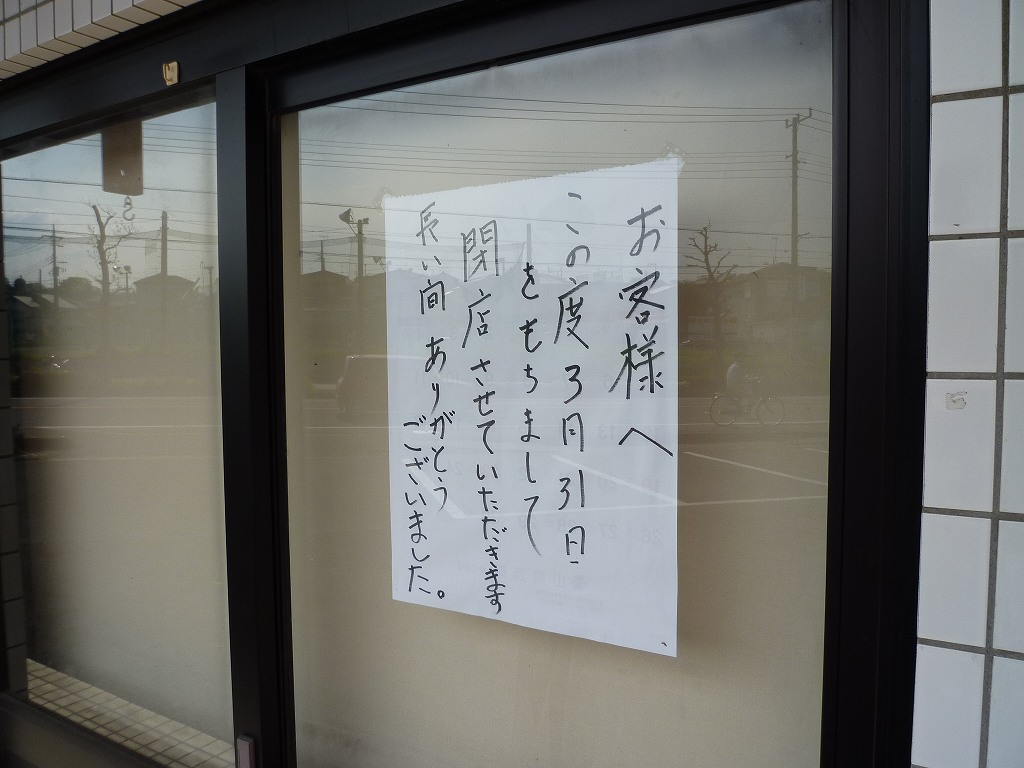 お客様へ
この度3月31日
をもちまして
閉店させていただきます
長い間ありがとう
ございました。